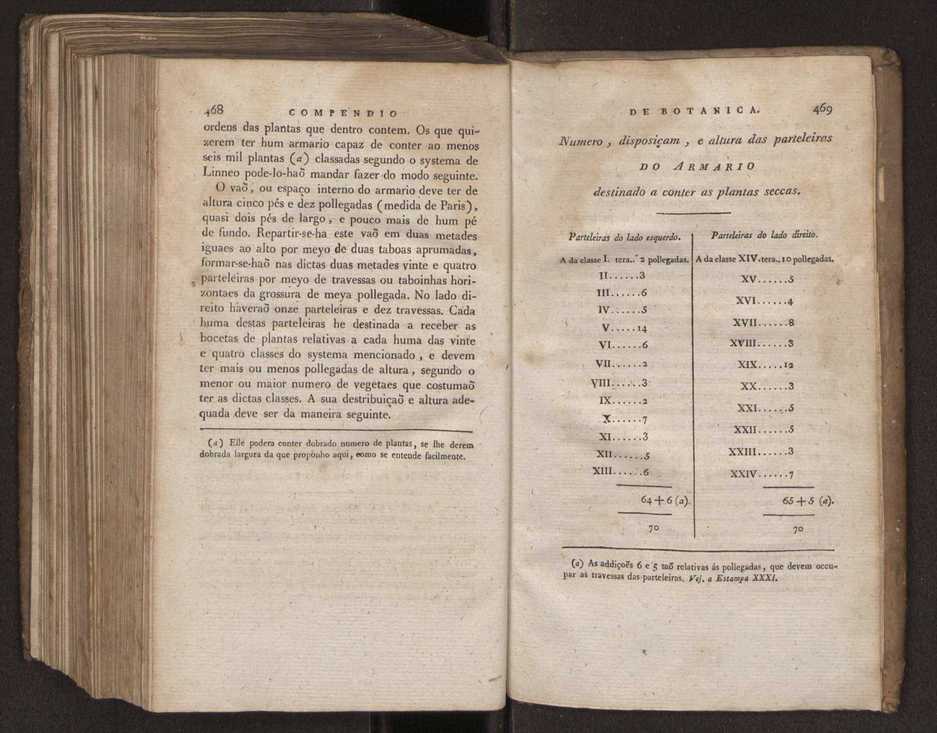 468 COMPENDIO
ordens das plantas que dentro contem. Os que qui-
zerem ter hum armario capaz de conter ao menos
seis mil plantas (a) classadas segundo o systema de
Linneo pode-lo-haõ mandar fazer do modo seguinte.
O vaõ, ou espaço interno do armario deve ter de
altura cinco pés e dez pollegadas (medida de Paris),
quasi dois pés de largo, e pouco mais de hum pé
de fundo. Repartir-se-ha este vaõ em duas metades
iguaes ao alto por meyo de duas taboas aprumadas,
formar-se-haõ nas dictas duas metades vinte e quatro
parteleiras por meyo de travessas ou taboinhas hori-
zontaes da grossura de meya pollegada. No lado di-
reito haveraõ onze parteleiras e dez travessas. Cada
huma destas parteleiras he destinada a receber as
bocetas de plantas relativas a cada huma das vinte
e quatro classes do systema mencionado, e devem
ter mais ou menos pollegadas de altura, segundo o
menor ou maior numero de vegetaes que costumaõ
ter as dictas classes. A sua destribuiçaõ e altura ade-
quada deve ser da maneira seguinte.
(a) Elle podera conter dobrado numero de plantas, se lhe derem
dobrada largura da que proponho aqui, como se entende facilmente.
DE BOTANICA. 469
Numero, disposiçam, e altura das parteleiras
DO ARMARIO
destinado a conter as plantas seccas.
Parteleiras do lado esquerdo.
A da classe I. tera.. 2 pollegadas.
II......3
III......6
IV......5
V.....14
VI......6
VII......2
VIII......3
IX......2
X......7
XI......3
XII......5
XIII......6
64+6 (a).
70
Parteleiras do lado direito.
A da classe XIV.tera., 10 pollegadas.
XV......5
XVI......4
XVII......8
XVIII......3
XIX.....12
XX......3
XXI......5
XXII......5
XXIII......3
XXIV......7
65+5 (a).
70
(a) As addiçoẽs 6 e 5 saõ relativas ás pollegadas, que devem occu-
par as travessas das parteleiras. Vej. a Estampa XXXI.